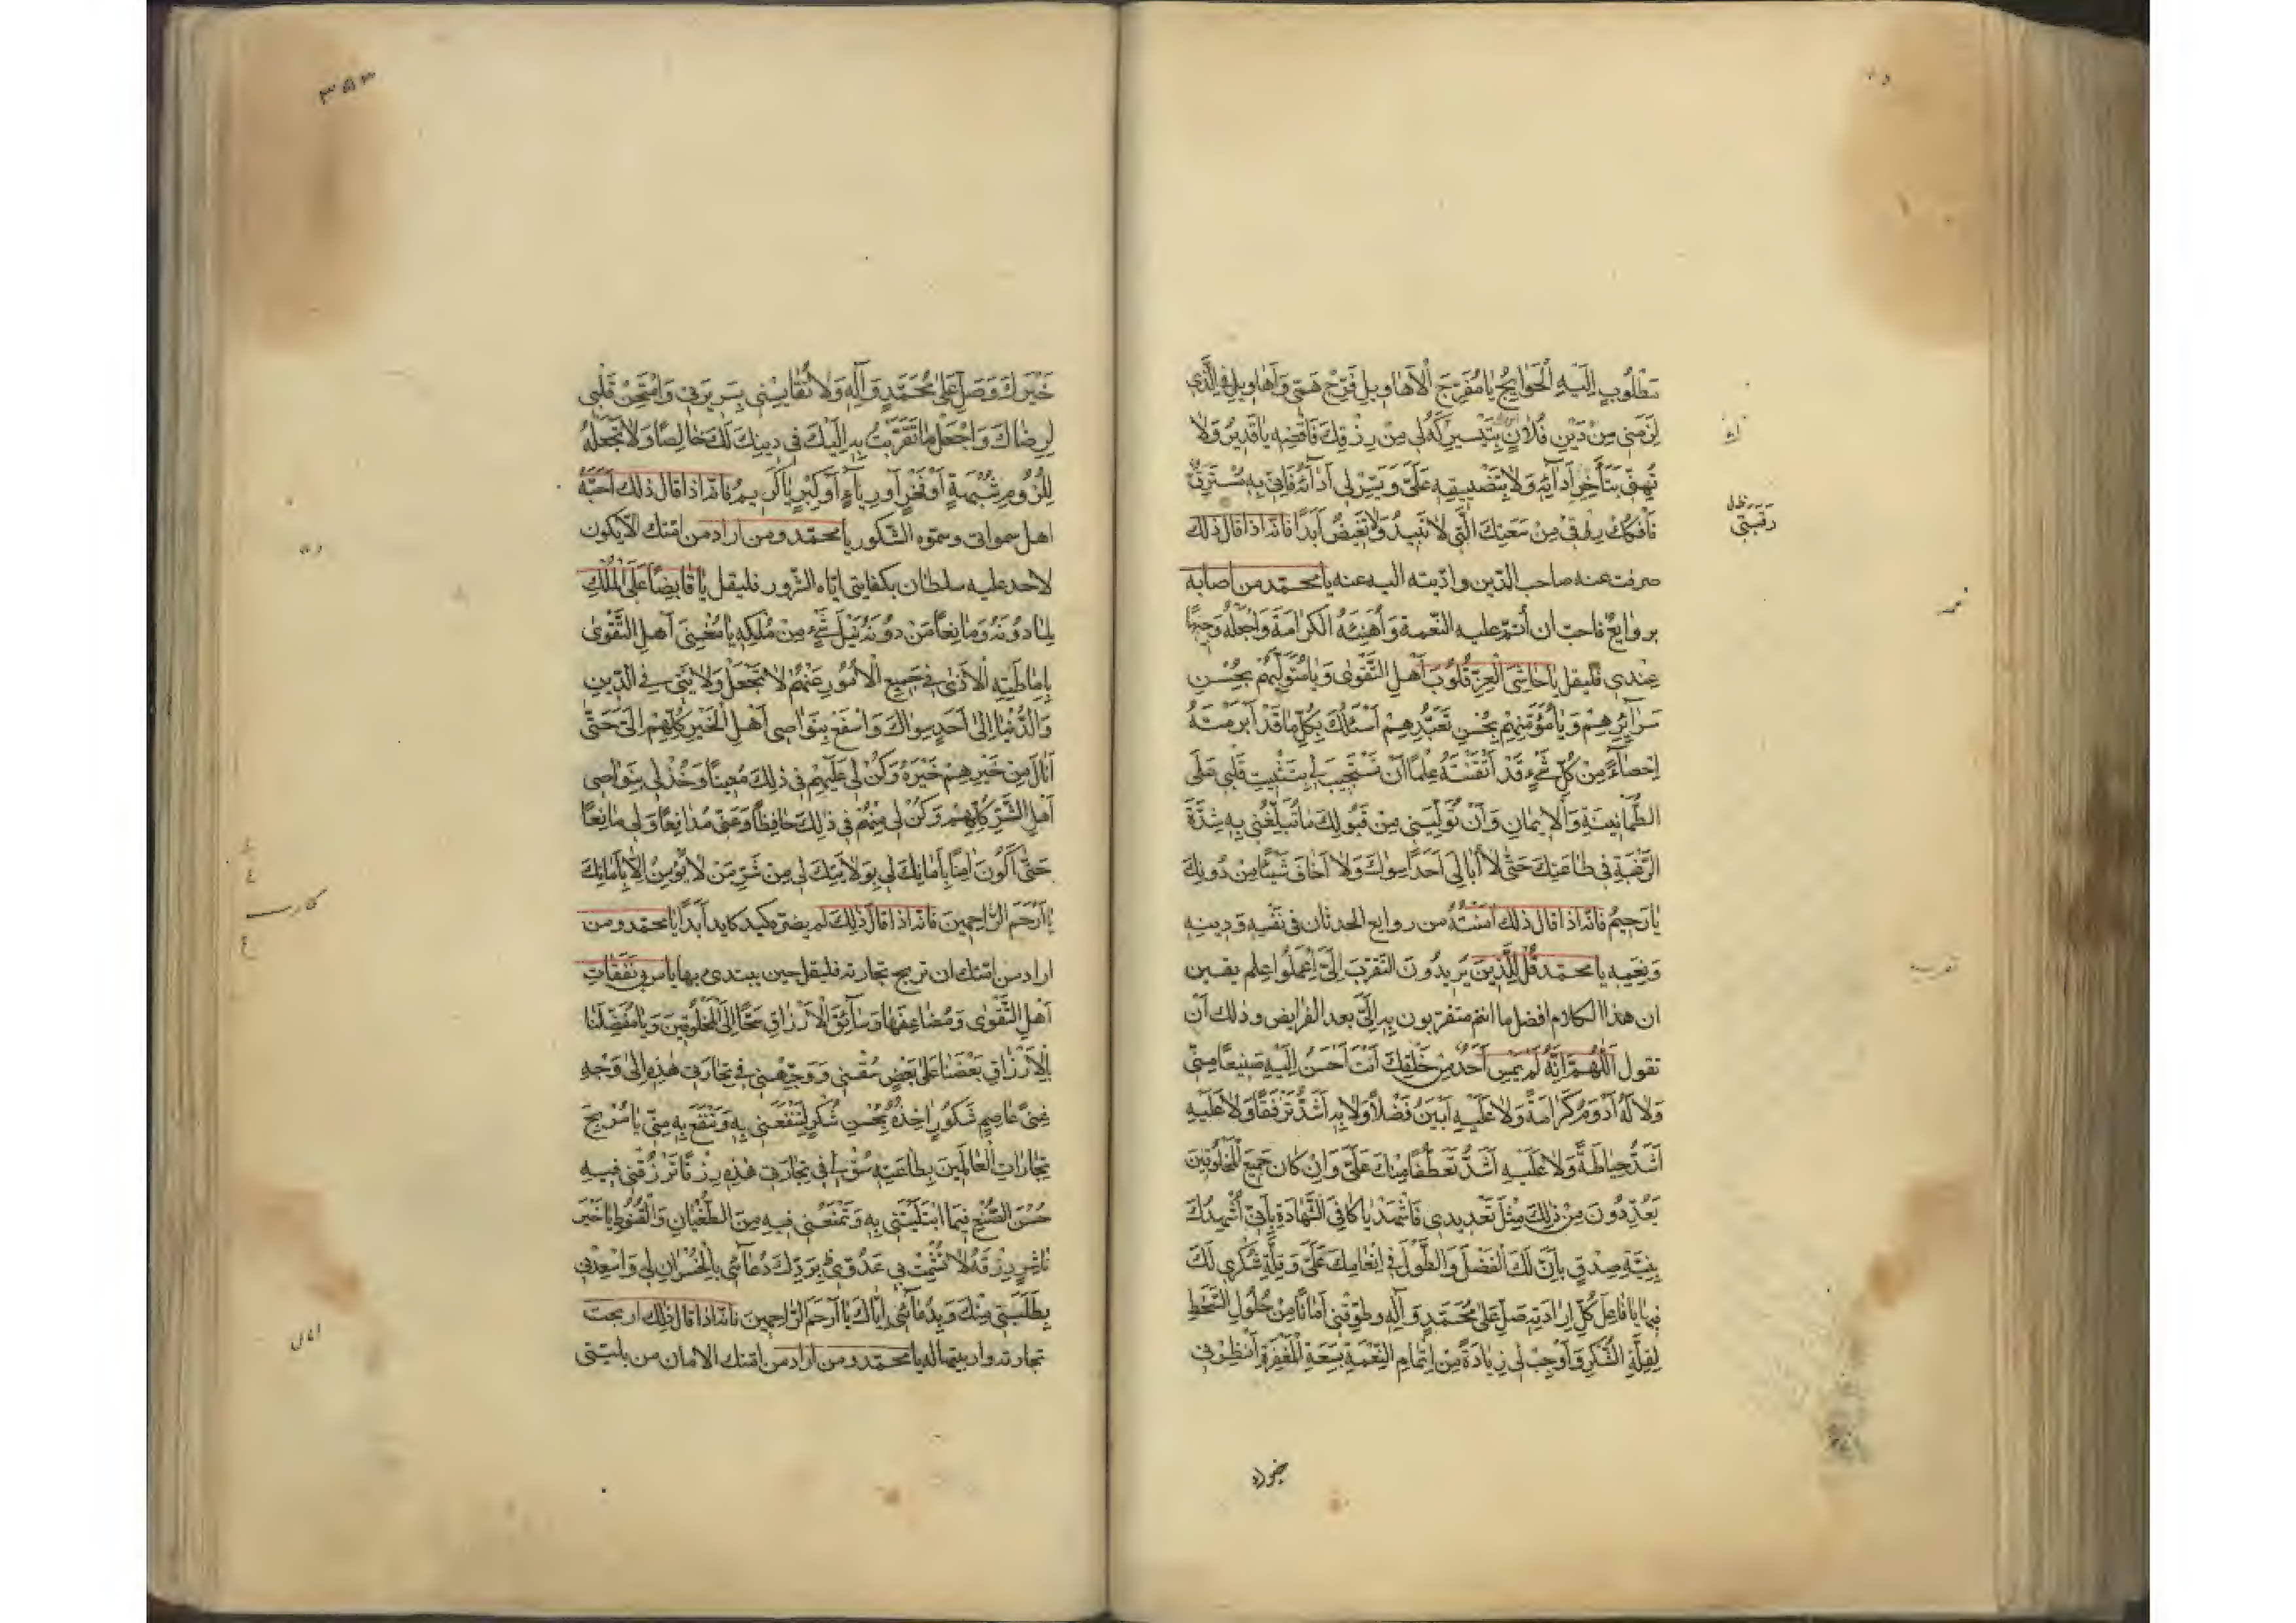 مَطْلُوبٍ اِلَيْهِ الْحَوايِجُ يا مُفَرِّجَ الْاَهاويلِ فَرِّجْ هَمّى وَاَهاويلى فِى الَّذى
لَزِمَنى مِنْ دَيْنِ فُلانٍ بِتَيْسيرِكَهُ لى مِنْ رِزْقِكَ فَاقْضِهِ يا قَديرُ وَلا
تُهِنّى بِتَأْخيرِ اَدائِهِ وَلا بِتَضْييقِهِ عَلَىَّ وَيَسِّرْ لى اَداءَهُ فَاِنّى بِهِ مُسْتَرَقٌّ
فَافْكُكْ رِقّى مِنْ سَعَتِكَ الَّتى لا تَبيدُ وَلا تَغيضُ اَبَدًا فانّه اذا قال ذلك
صرفت عنه صاحب الدّين وادّيته اليه عنه يا محمّد من اصابه
بروايع فاحبّ ان اُتمّ عليه النّعمة وَاُهَنِّئَهُ الْكَرامَةَ وَاَجْعَلَهُ وَجيهًا
عِنْدى فليقل يا حاشِىَ الْعِزِّ قُلُوبَ اَهْلِ التَّقْوى وَيا مُتَوَلِّيَهُمْ بِحُسْنِ
سَرائِرِهِمْ وَيا مُؤَمِّنَهُمْ بِحُسْنِ تَعَبُّدِهِمْ اَسْئَلُكَ بِكُلِّ ما قَدْ اَبْرَمْتَهُ
اِحْصاءً مِنْ كُلِّ شَىْءٍ قَدْ اَتْقَنْتَهُ عِلْمًا اَنْ تَسْتَجيبَ لى بِتَثْبيتِ قَلْبى عَلَى
الطُّمَأْنينَةِ وَالْايمانِ وَاَنْ تُوَلِّيَنى مِنْ قَبُولِكَ ما تُبَلِّغُنى بِهِ شِدَّةَ
الرَّغْبَةِ فى طاعَتِكَ حَتّى لا اُبالِىَ اَحَدًا سِواكَ وَلا اَخافَ شَيْئًا مِنْ دُونِكَ
يا رَحيمُ فانّه اذا قال ذلك امَنْتُهُ من روايع الحدثان فى نَفْسِهِ وَدينِهِ
وَنِعَمِهِ يا محمّد قُلْ لِلَّذينَ يُريدُونَ التَّقَرُّبَ اِلَىَّ اِعْمَلُوا عِلْمَ يقين
ان هذا الكلام افضل ما انتم متقرّبون به الىّ بعد الفرايض وذلك ان
تقول اَللّهُمَّ اِنَّهُ لَمْ يُمْسِ اَحَدٌ مِنْ خَلْقِكَ اَنْتَ اَحْسَنُ اِلَيْهِ صَنيعًا مِنّى
وَلا لَهُ اَدْوَمُ كَرامَةً وَلا عَلَيْهِ اَبْيَنُ فَضْلًا وَلا بِهِ اَشَدُّ تَرَفُّقًا وَلا عَلَيْهِ
اَشَدُّ حِياطَةً وَلا عَلَيْهِ اَشَدُّ تَعَطُّفًا مِنْكَ عَلَىَّ وَاِنْ كانَ جَميعُ الْمَخْلُوقينَ
يُعَدِّدُونَ مِنْ ذلِكَ مِثْلَ تَعْديدى فَاشْهَدْ يا كافِىَ الشَّهادَةِ بِاَنّى اُشْهِدُكَ
بِنِيَّةِ صِدْقٍ بِاَنَّ لَكَ الْفَضْلَ وَالطَّوْلَ فى اِنْعامِكَ عَلَىَّ وَقِلَّةِ شُكْرى لَكَ
فيها يا فاعِلَ كُلِّ اِرادَتِهِ صَلِّ عَلى مُحَمَّدٍ وَآلِهِ وَطَوِّقْنى اَمانًا مِنْ حُلُولِ السَّخَطِ
لِقِلَّةِ الشُّكْرِ وَاَوْجِبْ لى زِيادَةً مِنْ اِتْمامِ النِّعْمَةِ بِسَعَةِ الْمَغْفِرَةِ اَنْظِرْنى
رقبتى
٣٥٣
خَيْرَكَ وَصَلِّ عَلى مُحَمَّدٍ وَآلِهِ وَلا تُقايِسْنى بِسَريرَتى وَامْتَحِنْ قَلْبى
لِرِضاكَ وَاجْعَلْ ما تَقَرَّبْتُ بِهِ اِلَيْكَ فى دينِكَ لَكَ خالِصًا وَلا تَجْعَلْهُ
لِلُزُومِ شُبْهَةٍ اَوْ فَخْرٍ اَوْ رِياءٍ اَوْ كِبْرٍ يا كَريمُ فانّه اذا قال ذلك اَحَبَّهُ
اهل سمواتى وسمّوه الشّكور يا محمّد ومن اراد من امّتك الّا يكون
لاحد عليه سلطان بكفايتى ايّاه الشّرور فليقل يا قابِضًا عَلَى الْمُلْكِ
لِما دُونَهُ وَمانِعًا مَنْ دُونَهُ نَيْلَ شَىْءٍ مِنْ مُلْكِهِ يا مُغْنِىَ اَهْلِ التَّقْوى
بِاِماطَتِهِ الْاَذى فى جَميعِ الْاُمُورِ عَنْهُمْ لا تَجْعَلْ وَلايَتى فِى الدّينِ
وَالدُّنْيا اِلى اَحَدٍ سِواكَ وَاسْفَعْ بِنَواصى اَهْلِ الْخَيْرِ كُلِّهِمْ اِلَىَّ حَتّى
اَنالَ مِنْ خَيْرِهِمْ خَيْرَهُ وَكُنْ لى عَلَيْهِمْ فى ذلِكَ مُعينًا وَخُذْ لى بِنَواصى
اَهْلِ الشَّرِّ كُلِّهِمْ وَكُنْ لى مِنْهُمْ فى ذلِكَ حافِظًا وَعَنّى مُدافِعًا وَلى مانِعًا
حَتّى اَكُونَ امِنًا بِاَمانِكَ لى بِوَلايَتِكَ لى مِنْ شَرِّ مَنْ لا يُؤْمَنُ اِلّا بِاَمانِكَ
يا اَرْحَمَ الرّاحِمينَ فانّه اذا قالَ ذلِكَ لم يضرّه كيد كايد اَبَدًا يا محمّد ومن
اراد من امّتك ان تربح تجارته فليقل حين يبتدى بها يا مربى نَفَقاتِ
اَهْلِ التَّقْوى وَمُضاعِفَها وَسائِقَ الْاَرْزاقِ سَحًّا اِلَى الْمَخْلُوقينَ وَيا مُفَضِّلَنا
بِالْاَرْزاقِ بَعْضَنا عَلى بَعْضٍ سُقْنى وَوَجِّهْنى فى تِجارَتى هذِهِ اِلى وَجْهِ
غِنىً عاصِمٍ شَكُورٍ اخِذُهُ بِحُسْنِ شُكْرٍ لِتَنْفَعَنى بِهِ وَتَنْفَعَ بِهِ مِنّى يا مُرْبِحَ
تِجاراتِ الْعالَمينَ بِطاعَتِهِ سُقْ لى فى تِجارَتى هذِهِ رِزْقًا تَرْزُقُنى فيهِ
حُسْنَ الصُّنْعِ فيمَا ابْتَلَيْتَنى بِهِ وَتَمْنَعُنى فيهِ مِنَ الطُّغْيانِ وَالْقُنُوطِ يا خَيْرَ
ناشِرٍ رِزْقَهُ لا تُشْمِتْ بى عَدُوّى بِرَدِّكَ دُعائى بِالْخُسْرانِ لى وَاَسْعِدْنى
بِطَلِبَتى مِنْكَ وَبِدُعائى اِيّاكَ يا اَرْحَمَ الرّاحِمينَ فانّه اذا قال ذلك اربحت
تجارته واربيتها له يا محمّد ومن اراد من امّتك الامان من بليّتى